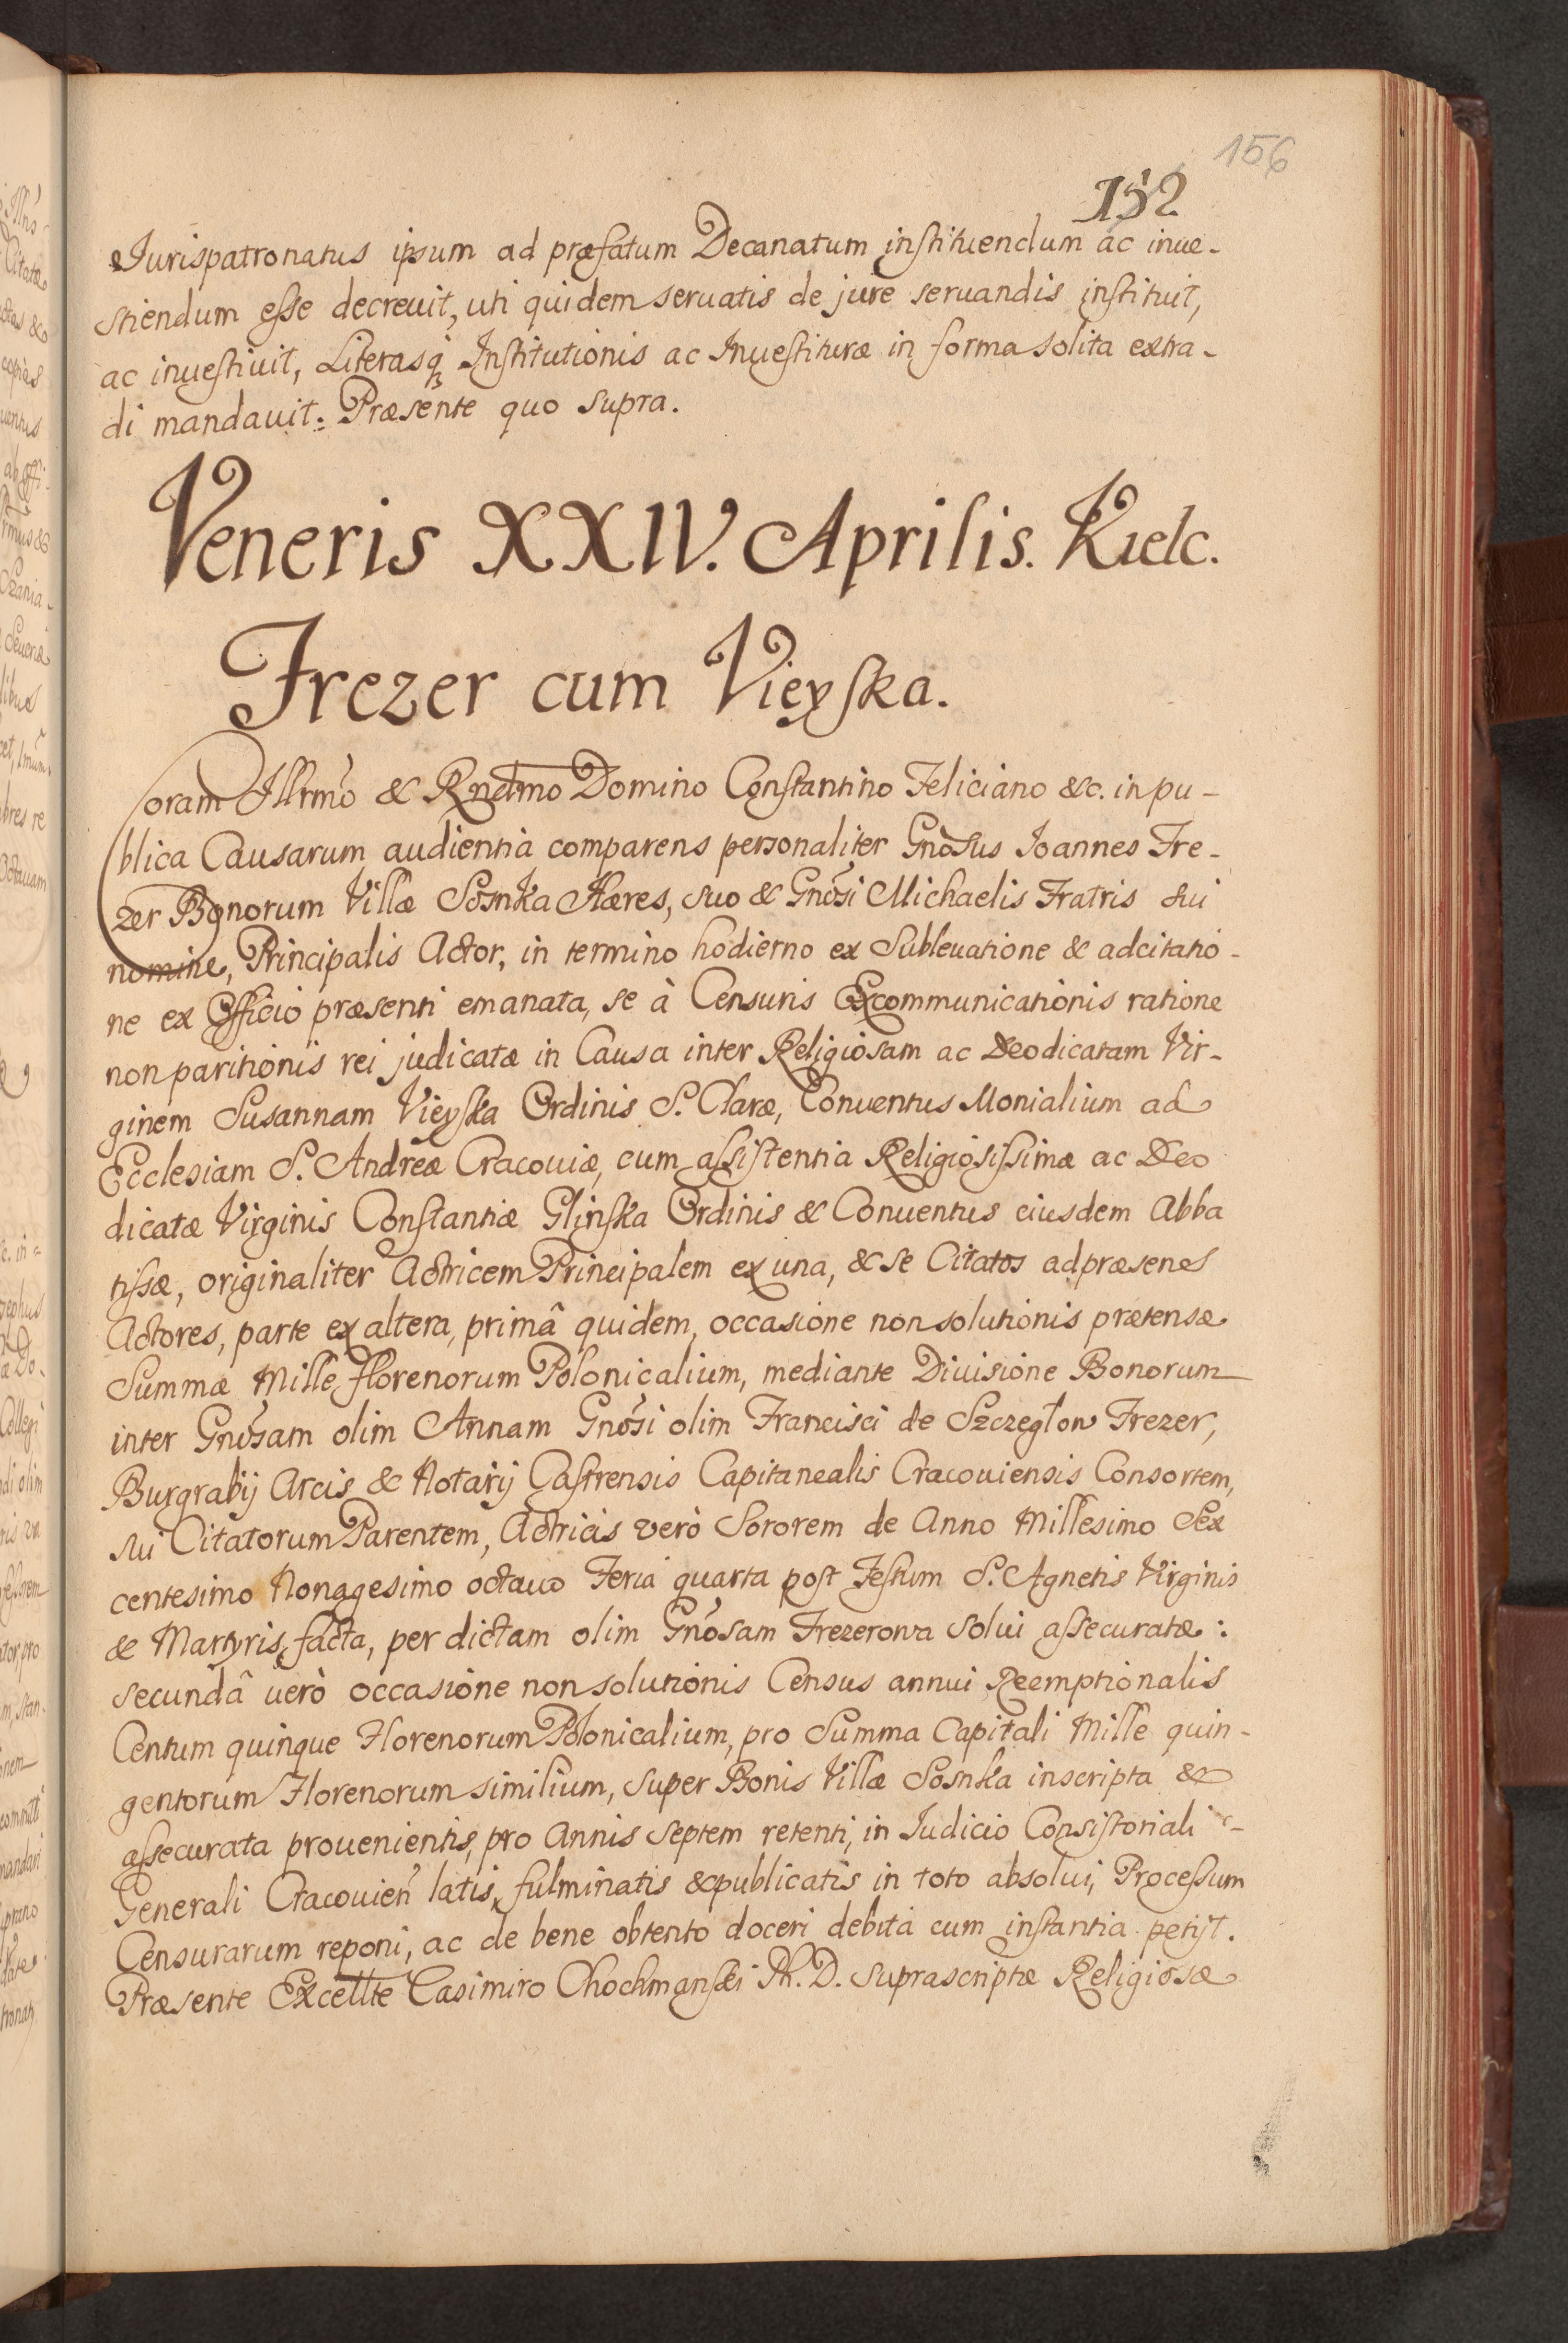 156
152
Jurispatronatus ipsum ad præfatum Decanatum instituendum ac inue-
stiendum esse decreuit, uti quidem seruatis de jure seruandis instituit,
ac inuestiuit, Literasq; Institutionis ac Inuestituræ in forma solita extra-
di mandauit. Præsente quo supra.
Veneris XXIV. Aprilis. Kielc.
Frezer cum Vieyska.
Coram Illrmo & Rndmo Domino Constantino Feliciano &c. in pu-
blica Causarum audientia comparens personaliter Gnosus Joannes Fre-
zer Bonorum Villæ Sosnka Hæres, suo & Gnosi Michaelis Fratris sui
nomine, Principalis Actor, in termino hodierno ex Subleuatione & adcitatio-
ne ex Officio præsenti emanata, se à Censuris Excommunicationis ratione
non paritionis rei judicatæ in Causa inter Religiosam ac Deodicatam Vir-
ginem Susannam Vieyska Ordinis S. Claræ, Conuentus Monialium ad
Ecclesiam S. Andreæ Cracouiæ, cum assistentia Religiosissimæ ac Deo
dicatæ Virginis Constantiæ Glinska Ordinis & Conuentus eiusdem Abba
tissæ, originaliter Actricem Principalem ex una, & se Citatos ad præsens
Actores, parte ex altera, primâ quidem, occasione non solutionis prætensæ
Summæ Mille florenorum Polonicalium, mediante Diuisione Bonorum
inter Gnosam olim Annam Gnosi olim Francisci de Szczegłow Frezer,
Burgrabij Arcis & Notarij Castrensis Capitanealis Cracouiensis Consortem,
sui Citatorum Parentem, Actricis verò Sororem de Anno Millesimo Sex
centesimo Nonagesimo octauo Feria quarta post Festum S. Agnetis Virginis
& Martyris facta, per dictam olim Gnosam Frezerowa solui assecuratæ:
secundâ uerò occasione non solutionis Census annui Reemptionalis
Centum quinque Florenorum Polonicalium, pro Summa Capitali Mille quin-
gentorum Florenorum similium, super Bonis Villæ Sosnka inscripta &
assecurata prouenientis, pro Annis septem retenti, in Iudicio Consistoriali
Generali Cracouien latis, fulminatis & publicatis in toto absolui, Processum
Censurarum reponi, ac de bene obtento doceri debita cum instantia petijt.
Præsente Excellte Casimiro Chochmanski Ph. D. suprascriptæ Religiosæ